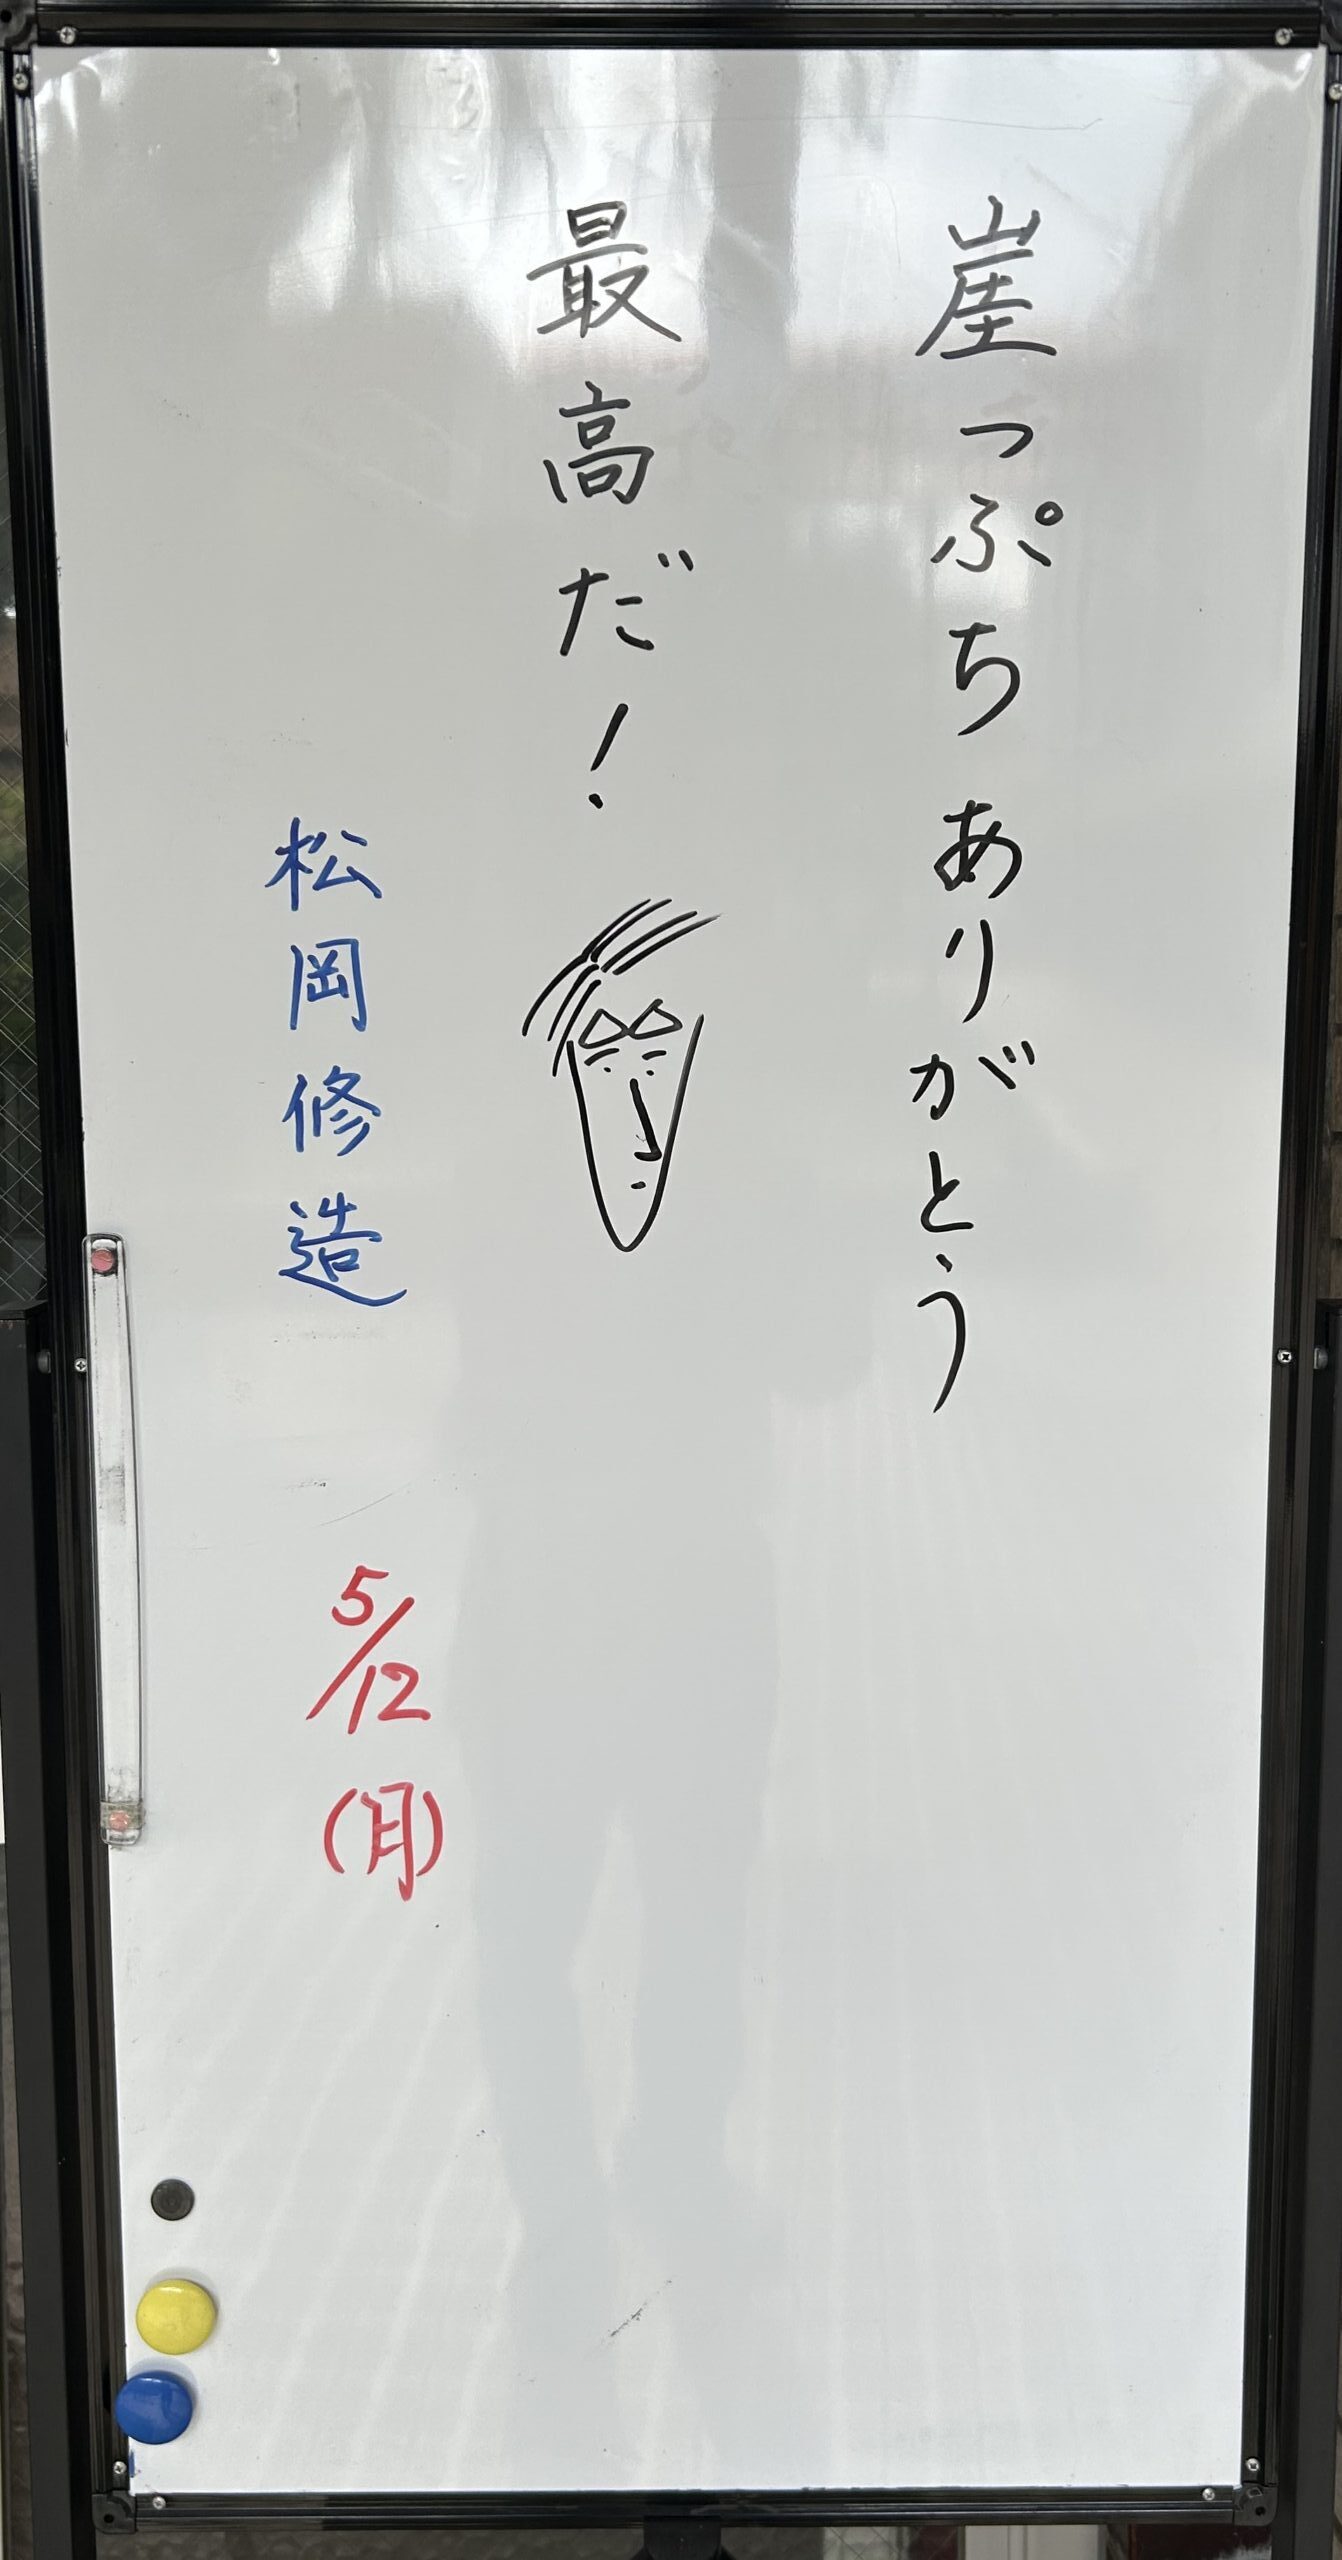 崖っぷちありがとう
最高だ!
松岡修造
5/12(月)